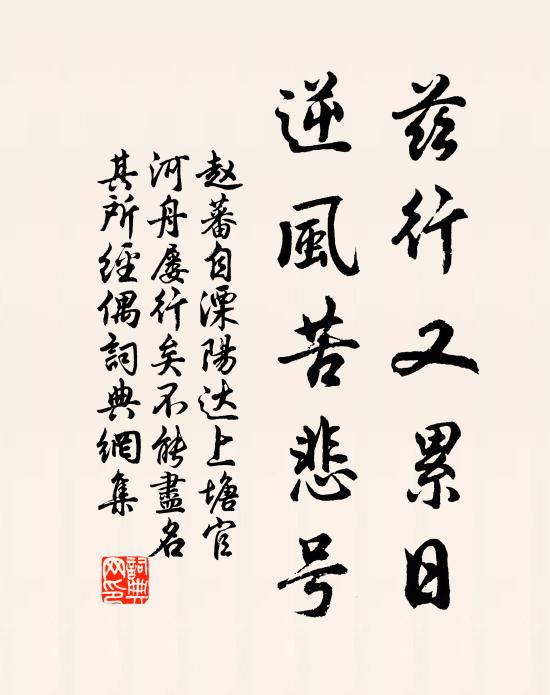 兹行又累日
逆風苦悲号
赵蕃自溧陽达上塘官
河舟屡行矣不能盡名
其所經偶詞典網集
詞典網印